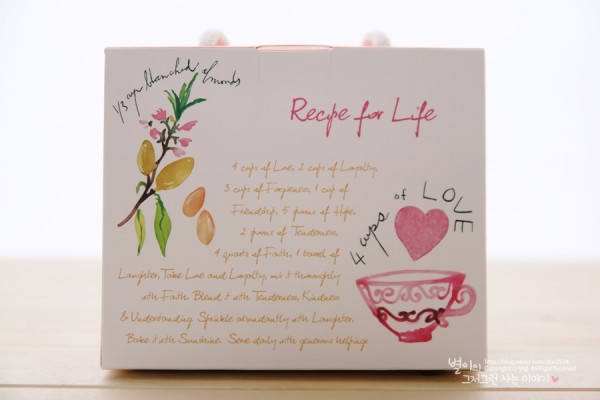 1/3 cup blanched almonds
Recipe for Life
4 cups of Love, 2 cups of Loyalty,
3 cups of Forgiveness, 1 cup of
Friendship, 5 spoons of Hope,
2 spoons of Tenderness,
4 quarts of Faith, 1 barrel of
Laughter, Take Love and Loyalty, mix it thoroughly
with Faith. Blend it with Tenderness, Kindness
& Understanding. Sprinkle abundantly with Laughter,
Bake it with Sunshine. Serve daily with generous helpings
4 cups of LOVE
별이의
그저그런 사는 이야기
All Right Reserved